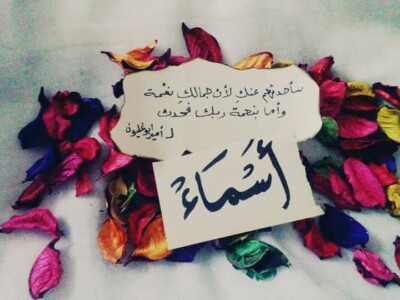 سأحدثهم عنكِ لأن جمالكِ نعمة
وأما بنعمة ربك فحدث
لـ أمير ابو غليون
أَسْمَاءْ